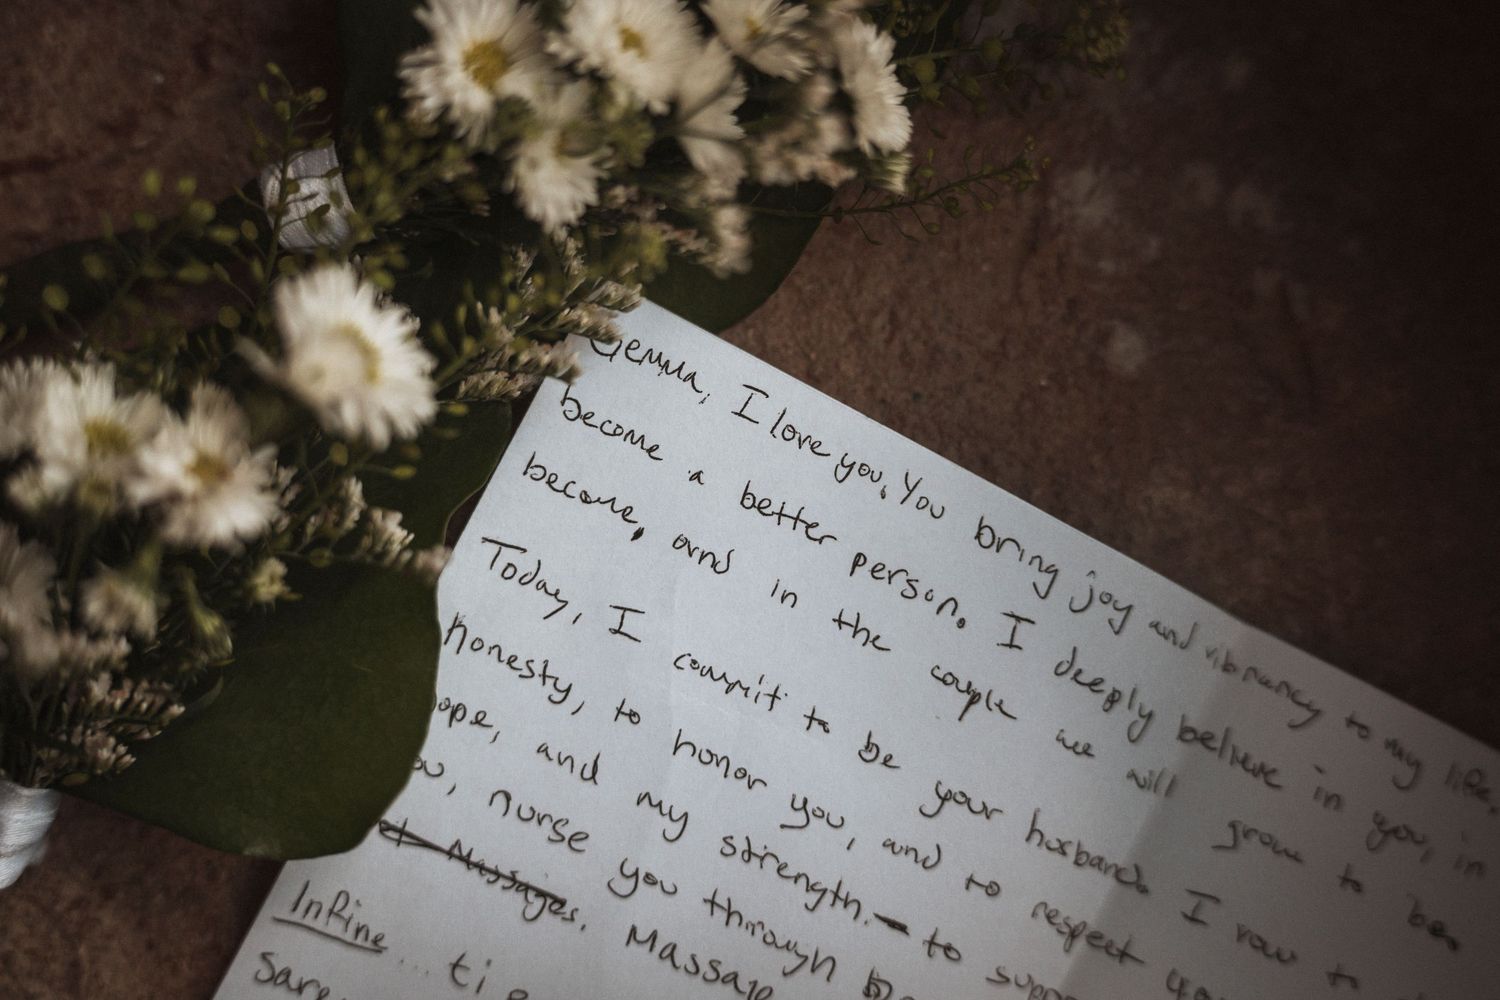 Gemma, I love you. You bring joy and vibrancy to my life.
become a better person. I deeply believe in you, in
become, and in the couple we will grow to be
Today, I commit to be your husband. I vow to
honesty, to honor you, and to respect you
ope, and my strength. to
ou, nurse you through
Massages. Massage
Infine... ti
sare